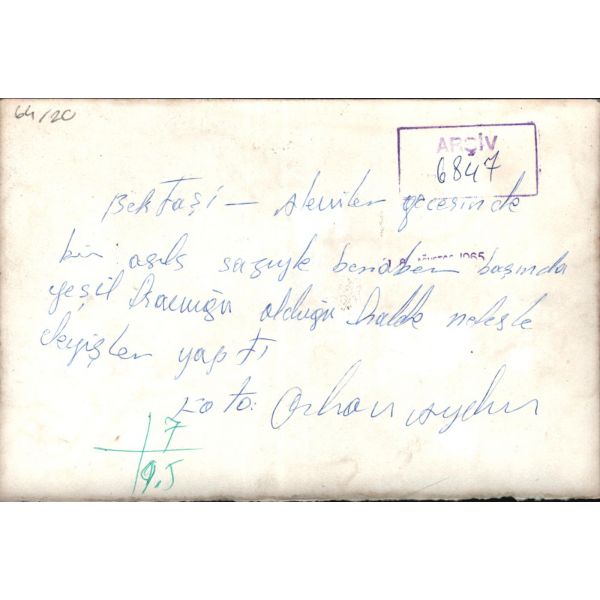 64/20
ARÇİV
6847
Bektaşi - Aleviler gecesinde
bir aşık sazıyle beraber başında
AĞUSTOS 1965
yeşil olduğu halde nefesle
deyişler yaptı
Foto: Orhan Aydın
7
9.5